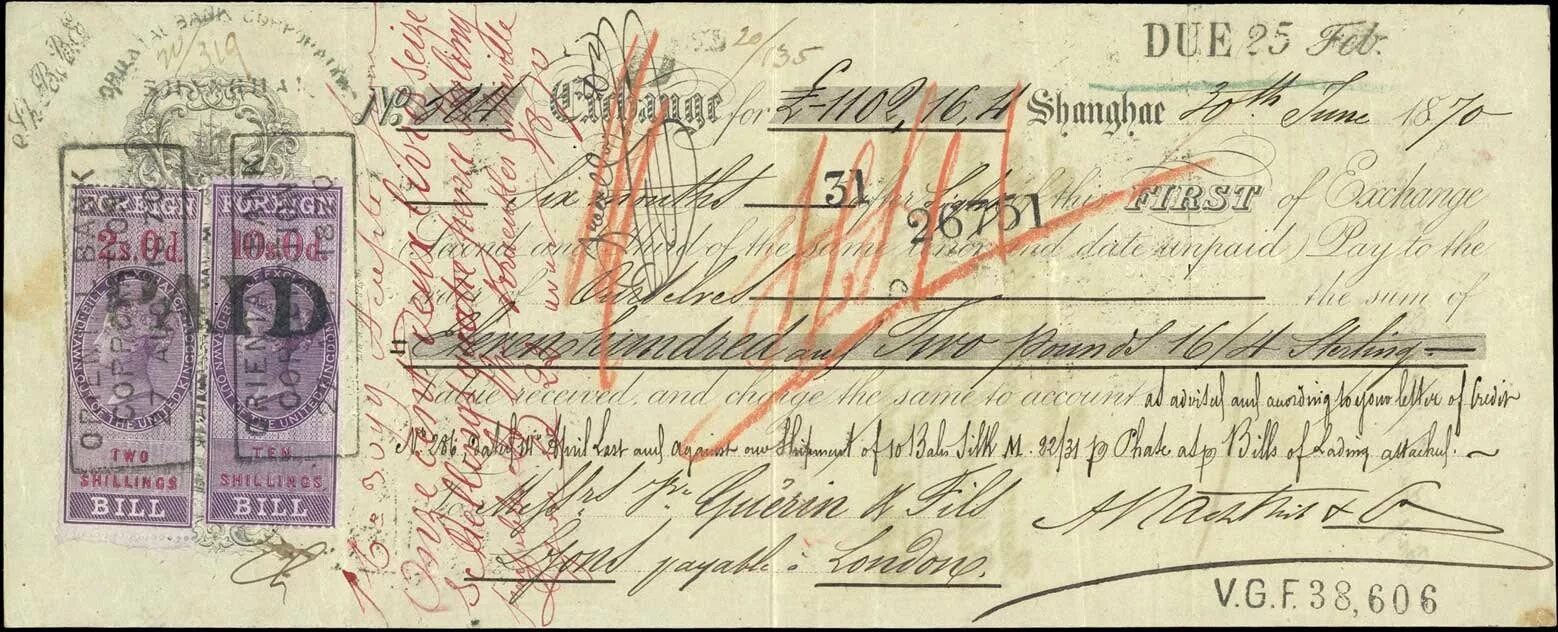 ORIENTAL BANK CORPORATION
SHANGHAI
20/319
20/135
DUE 25 Feb.
No. 544 Exchange for £1102,16,4 Shanghae 30th June 1870
Six months after Sight of this FIRST of Exchange
31
26731
(Second and Third of the same Tenor and date unpaid) Pay to the
order of Ourselves the sum of
Eleven hundred and Two pounds 16/4 Sterling
Value received, and charge the same to account as advised and according to your letter of Credit
No. 286 dated April Last and Against our Shipment of 10 Bales Silk M. 22/31 p Phase as p Bills of Lading attached.
To Messrs Guérin & Fils
Lyons payable à London.
V.G.F. 38,606
FOREIGN
2s.0d.
TWO
SHILLINGS
BILL
FOREIGN
10s.0d.
TEN
SHILLINGS
BILL
PAID
ORIENTAL BANK
CORPORATION
ORIENTAL BANK
CORPORATION
Accepté
Onze cent deux livres seize
Schellings quatre pence Sterling